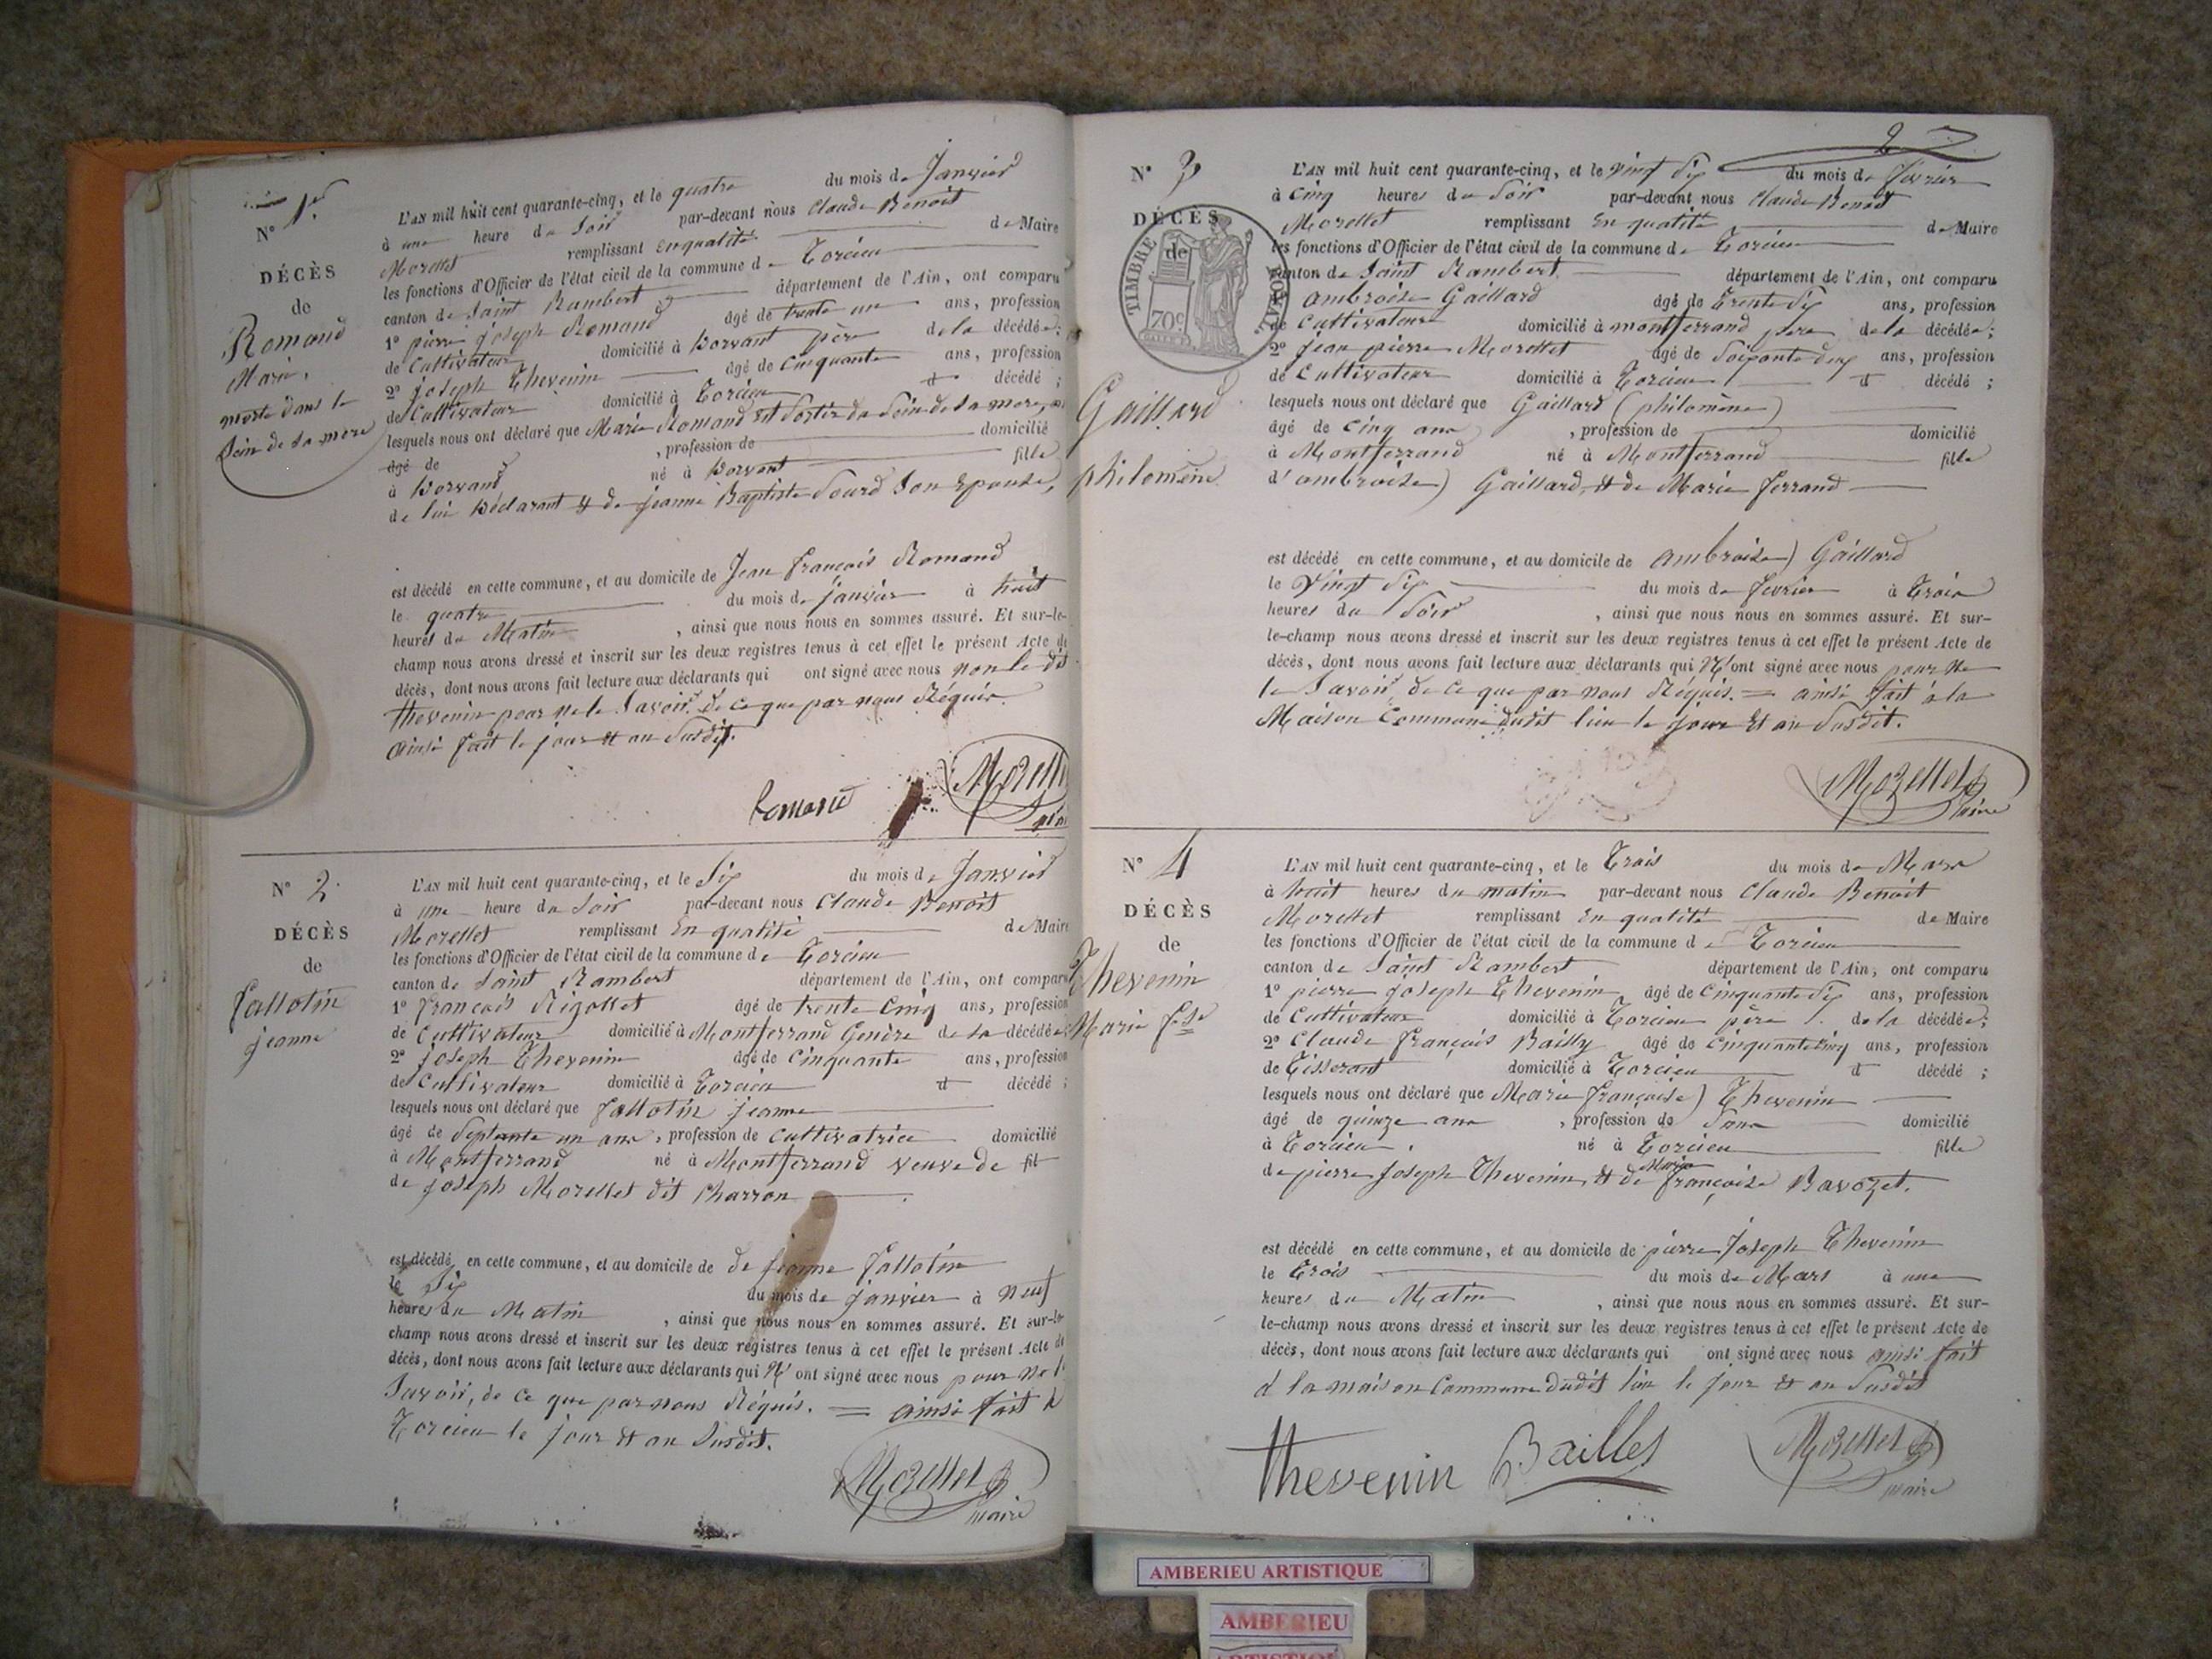 N° 1er
DÉCÈS
de
Romand
Marie,
morte dans le
Sein de sa mere
L'AN mil huit cent quarante-cinq, et le quatre du mois de Janvier
à une heure du Soir par-devant nous Claude Benoit
Morellet remplissant En qualité de Maire
les fonctions d'Officier de l'état civil de la commune de Torcieu
canton de Saint Rambert département de l'Ain, ont comparu
1° pierre joseph Romand âgé de trente un ans, profession
de Cultivateur domicilié à Dorvant père de la décédée;
2° joseph Thevenin âgé de Cinquante ans, profession
de Cultivateur domicilié à Torcieu et décédé ;
lesquels nous ont déclaré que Marie Romand est Sortie du Sein de sa mere,
âgé de , profession de domicilié
à Dorvand né à Dorvant fille
de lui Déclarant et de jeanne Baptiste Sourd Son Epouse,
est décédé en cette commune, et au domicile de Jean François Romand
le quatre du mois de janvier à huit
heures du Matin , ainsi que nous nous en sommes assuré. Et sur-le-
champ nous avons dressé et inscrit sur les deux registres tenus à cet effet le présent Acte de
décès, dont nous avons fait lecture aux déclarants qui ont signé avec nous non le dit
thevenin pour ne le Savoir. de ce que par nous Réquis.
ainsi fait le jour et an Susdit.
Romand Morellet
N° 2.
DÉCÈS
de
Fallotin
jeanne
L'AN mil huit cent quarante-cinq, et le Six du mois de Janvier
à une heure du Soir par-devant nous Claude Benoit
Morellet remplissant En qualité de Maire
les fonctions d'Officier de l'état civil de la commune de Torcieu
canton de Saint Rambert département de l'Ain, ont comparu
1° François Rigollet âgé de trente Cinq ans, profession
de Cultivateur domicilié à Montferrand Gendre de la décédée
2° joseph Thevenin âgé de Cinquante ans, profession
de Cultivateur domicilié à Torcieu et décédé ;
lesquels nous ont déclaré que Fallotin jeanne
âgé de Septante un ans, profession de Cultivatrice domicilié
à Montferrand né à Montferrand veuve de fil
de joseph Morellet dit Charron
est décédé en cette commune, et au domicile de de jeanne Fallotin
le Six du mois de janvier à neuf
heures du Matin , ainsi que nous nous en sommes assuré. Et sur-le-
champ nous avons dressé et inscrit sur les deux registres tenus à cet effet le présent Acte de
décès, dont nous avons fait lecture aux déclarants qui N'ont signé avec nous pour ne le
Savoir, de ce que par nous Réquis. = ainsi fait à
Torcieu le jour et an Susdit.
Morellet
maire
2
N° 3
DÉCÈS
de
TIMBRE ROYAL
70c
Gaillard
philomène
L'AN mil huit cent quarante-cinq, et le vingt Six du mois de Fevrier
à Cinq heures du Soir par-devant nous Claude Benoit
Morellet remplissant En qualité de Maire
les fonctions d'Officier de l'état civil de la commune de Torcieu
canton de Saint Rambert département de l'Ain, ont comparu
1° ambroise Gaillard âgé de Trente Six ans, profession
de Cultivateur domicilié à montferrand pere de la décédée;
2° jean pierre Morellet âgé de Soixante dix ans, profession
de Cultivateur domicilié à Torcieu et décédé ;
lesquels nous ont déclaré que Gaillard (philomène)
âgé de Cinq ans , profession de domicilié
à Montferrand né à Montferrand fille
d'ambroise) Gaillard, et de Marie ferrand
est décédé en cette commune, et au domicile de ambroise) Gaillard
le Vingt Six du mois de fevrier à Trois
heures du Soir , ainsi que nous nous en sommes assuré. Et sur-
le-champ nous avons dressé et inscrit sur les deux registres tenus à cet effet le présent Acte de
décès, dont nous avons fait lecture aux déclarants qui N'ont signé avec nous pour ne
le Savoir, de ce que par nous Réquis. = ainsi fait à la
Maison Commune dudit lieu le jour Et an Susdit.
Morellet
maire
N° 4
DÉCÈS
de
Thevenin
Marie fse
L'AN mil huit cent quarante-cinq, et le Trois du mois de Mars
à huit heures du matin par-devant nous Claude Benoit
Morellet remplissant En qualité de Maire
les fonctions d'Officier de l'état civil de la commune de Torcieu
canton de Saint Rambert département de l'Ain, ont comparu
1° pierre joseph Thevenin âgé de Cinquante Six ans, profession
de Cultivateur domicilié à Torcieu père de la décédée;
2° Claude françois Bailly âgé de Cinquante Cinq ans, profession
de Tisserant domicilié à Torcieu et décédé ;
lesquels nous ont déclaré que Marie françoise) Thevenin
âgé de quinze ans , profession de Sans domicilié
à Torcieu. né à Torcieu fille
de pierre Joseph Thevenin, et de Marie françoise Bavozet.
est décédé en cette commune, et au domicile de pierre Joseph Thevenin
le Trois du mois de Mars à une
heures du Matin , ainsi que nous nous en sommes assuré. Et sur-
le-champ nous avons dressé et inscrit sur les deux registres tenus à cet effet le présent Acte de
décès, dont nous avons fait lecture aux déclarants qui ont signé avec nous ainsi fait
à la maison Commune dudit lieu le jour Et an Susdit
thevenin Bailles Morellet
maire
AMBERIEU ARTISTIQUE
AMBERIEU
ARTISTIQUE